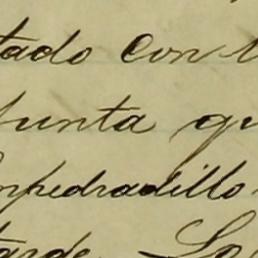 tado con
junta qu
mpedradillo
tarde. Lo